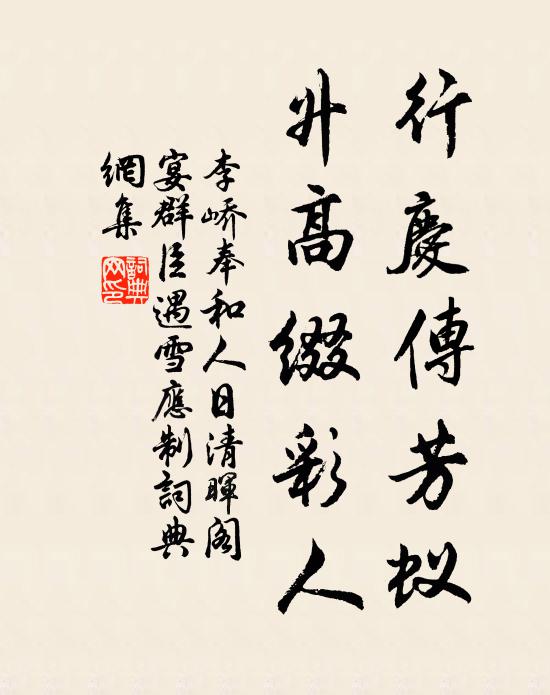 行慶傳芳蚁
升高缀彩人
李峤奉和人日清暉阁
宴群臣遇雪應制詞典
網集
詞典網印